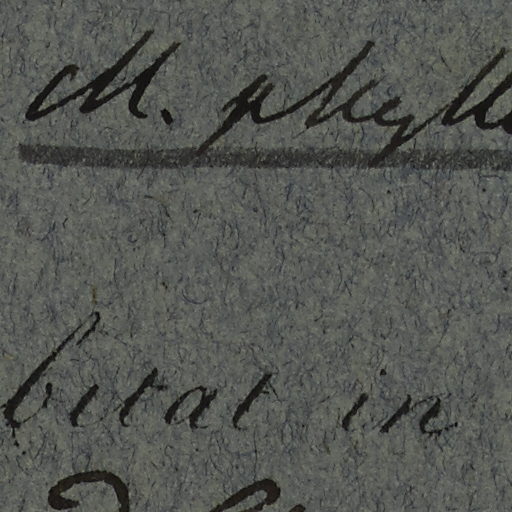 M. phyll
bitat in